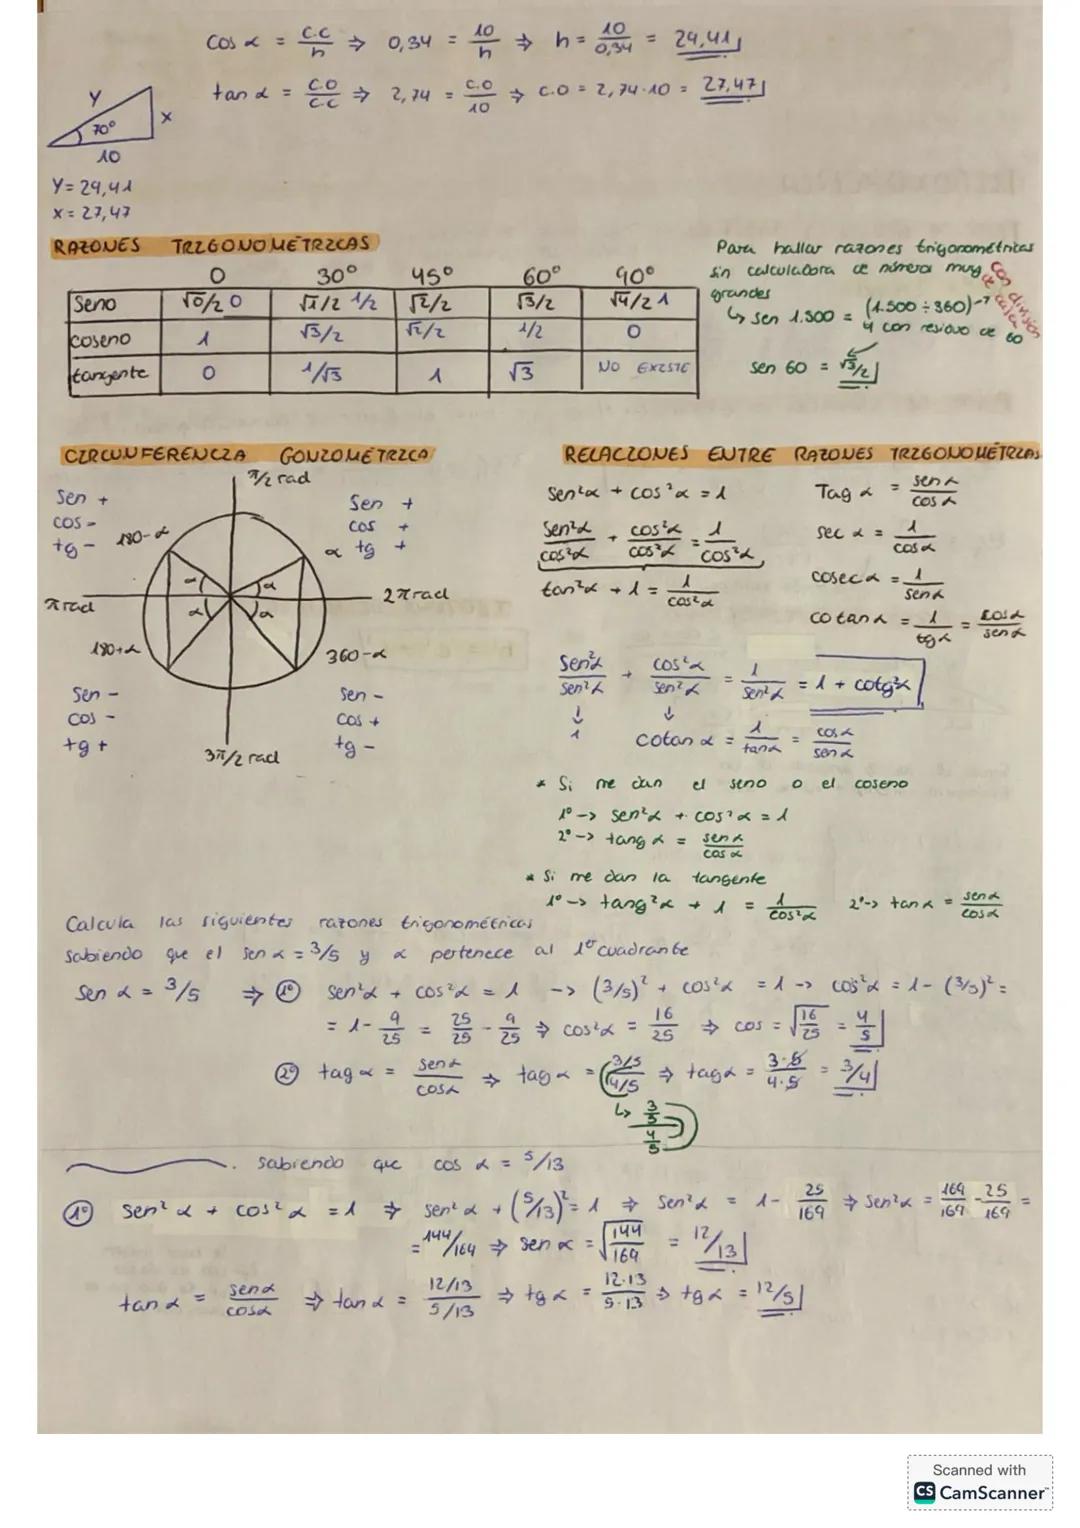 cos α = c.c/h ⇒ 0,34 = 10/h ⇒ h = 10/0,34 = 29,41
tan α = c.o/c.c ⇒ 2,74 = c.o/10 ⇒ c.o = 2,74·10 = 27,47
Y
70°
X
10
Y = 29,41
X = 27,47
RAZONES TRIGONOMÉTRICAS
0 30° 45° 60° 90°
Seno √0/2 0 √1/2 1/2 √2/2 √3/2 √4/2 1
coseno 1 √3/2 √2/2 1/2 0
tangente 0 1/√3 1 √3 NO EXISTE
Para hallar razones trigonométricas
sin calculadora de números muy
grandes
↳ sen 1.500 = (1.500 ÷ 360) →
4 con residuo de 60
con división
sen 60 = √3/2
CIRCUNFERENCIA GONIOMÉTRICA
π/2 rad
Sen +
cos -
tg -
180-α
Sen +
cos +
tg +
α
α α
α α
π rad
2π rad
180+α
360-α
Sen -
cos -
tg +
sen -
cos +
tg -
3π/2 rad
RELACIONES ENTRE RAZONES TRIGONOMÉTRICAS
Sen²α + cos²α = 1
Tag α = sen α/cos α
Sen²α/cos²α + cos²α/cos²α = 1/cos²α
sec α = 1/cos α
tan²α + 1 = 1/cos²α
cosec α = 1/sen α
cotan α = 1/tg α = cos α/sen α
Sen²α/sen²α + cos²α/sen²α = 1/sen²α = 1 + cotg²α
↓ ↓
1 cotan α = 1/tan α = cos α/sen α
* Si me dan el seno o el coseno
1º -> sen²α + cos²α = 1
2º -> tang α = sen α/cos α
* Si me dan la tangente
1º -> tang²α + 1 = 1/cos²α 2º -> tan α = sen α/cos α
Calcula las siguientes razones trigonométricas
sabiendo que el sen α = 3/5 y α pertenece al 1er cuadrante
Sen α = 3/5 ⇒ 1º sen²α + cos²α = 1 -> (3/5)² + cos²α = 1 -> cos²α = 1 - (3/5)² =
= 1 - 9/25 = 25/25 - 9/25 ⇒ cos²α = 16/25 ⇒ cos = √16/25 = 4/5
2º tag α = sen α/cos α ⇒ tag α = 3/5/4/5 ⇒ tag α = 3·5/4·5 = 3/4
↳ 3/5
4/5
. sabiendo que cos α = 5/13
1º sen²α + cos²α = 1 ⇒ sen²α + (5/13)² = 1 ⇒ sen²α = 1 - 25/169 ⇒ sen²α = 169/169 - 25/169 =
= 144/169 ⇒ sen α = √144/169 = 12/13
tan α = sen α/cos α ⇒ tan α = 12/13/5/13 ⇒ tg α = 12·13/5·13 ⇒ tg α = 12/5
Scanned with
CS CamScanner